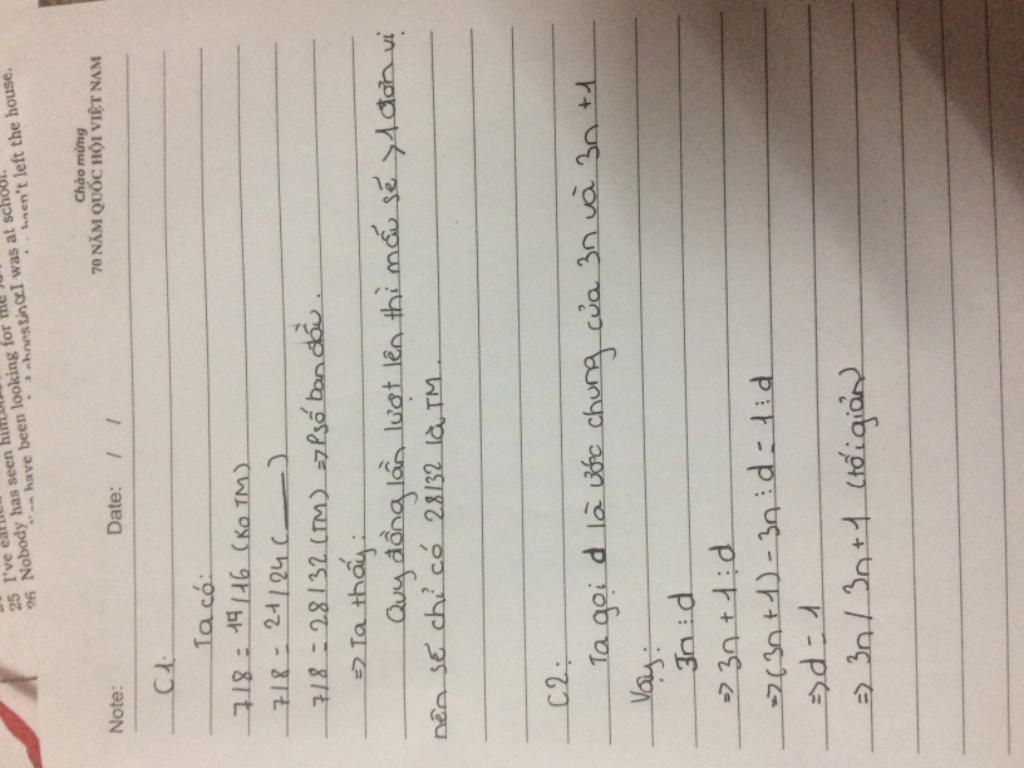 25 I've earned
Nobody has seen him
have been looking for me
since I was at school.
26 haven't left the house.
Chào mừng
70 NĂM QUỐC HỘI VIỆT NAM
Note: Date: / /
C1:
Ta có:
7/8 = 14/16 (KoTM)
7/8 = 21/24 (——)
7/8 = 28/32 (TM) => Psố ban đầu.
=> Ta thấy:
Quy đồng lần lượt lên thì mấu sế > 1 đơn vị
nên sẽ chỉ có 28/32 là TM.
C2:
Ta gọi d là ước chung của 3n và 3n + 1
Vậy:
3n : d
=> 3n + 1 : d
=> (3n + 1) - 3n : d = 1 : d
=> d = 1
=> 3n / 3n + 1 (tối giản)